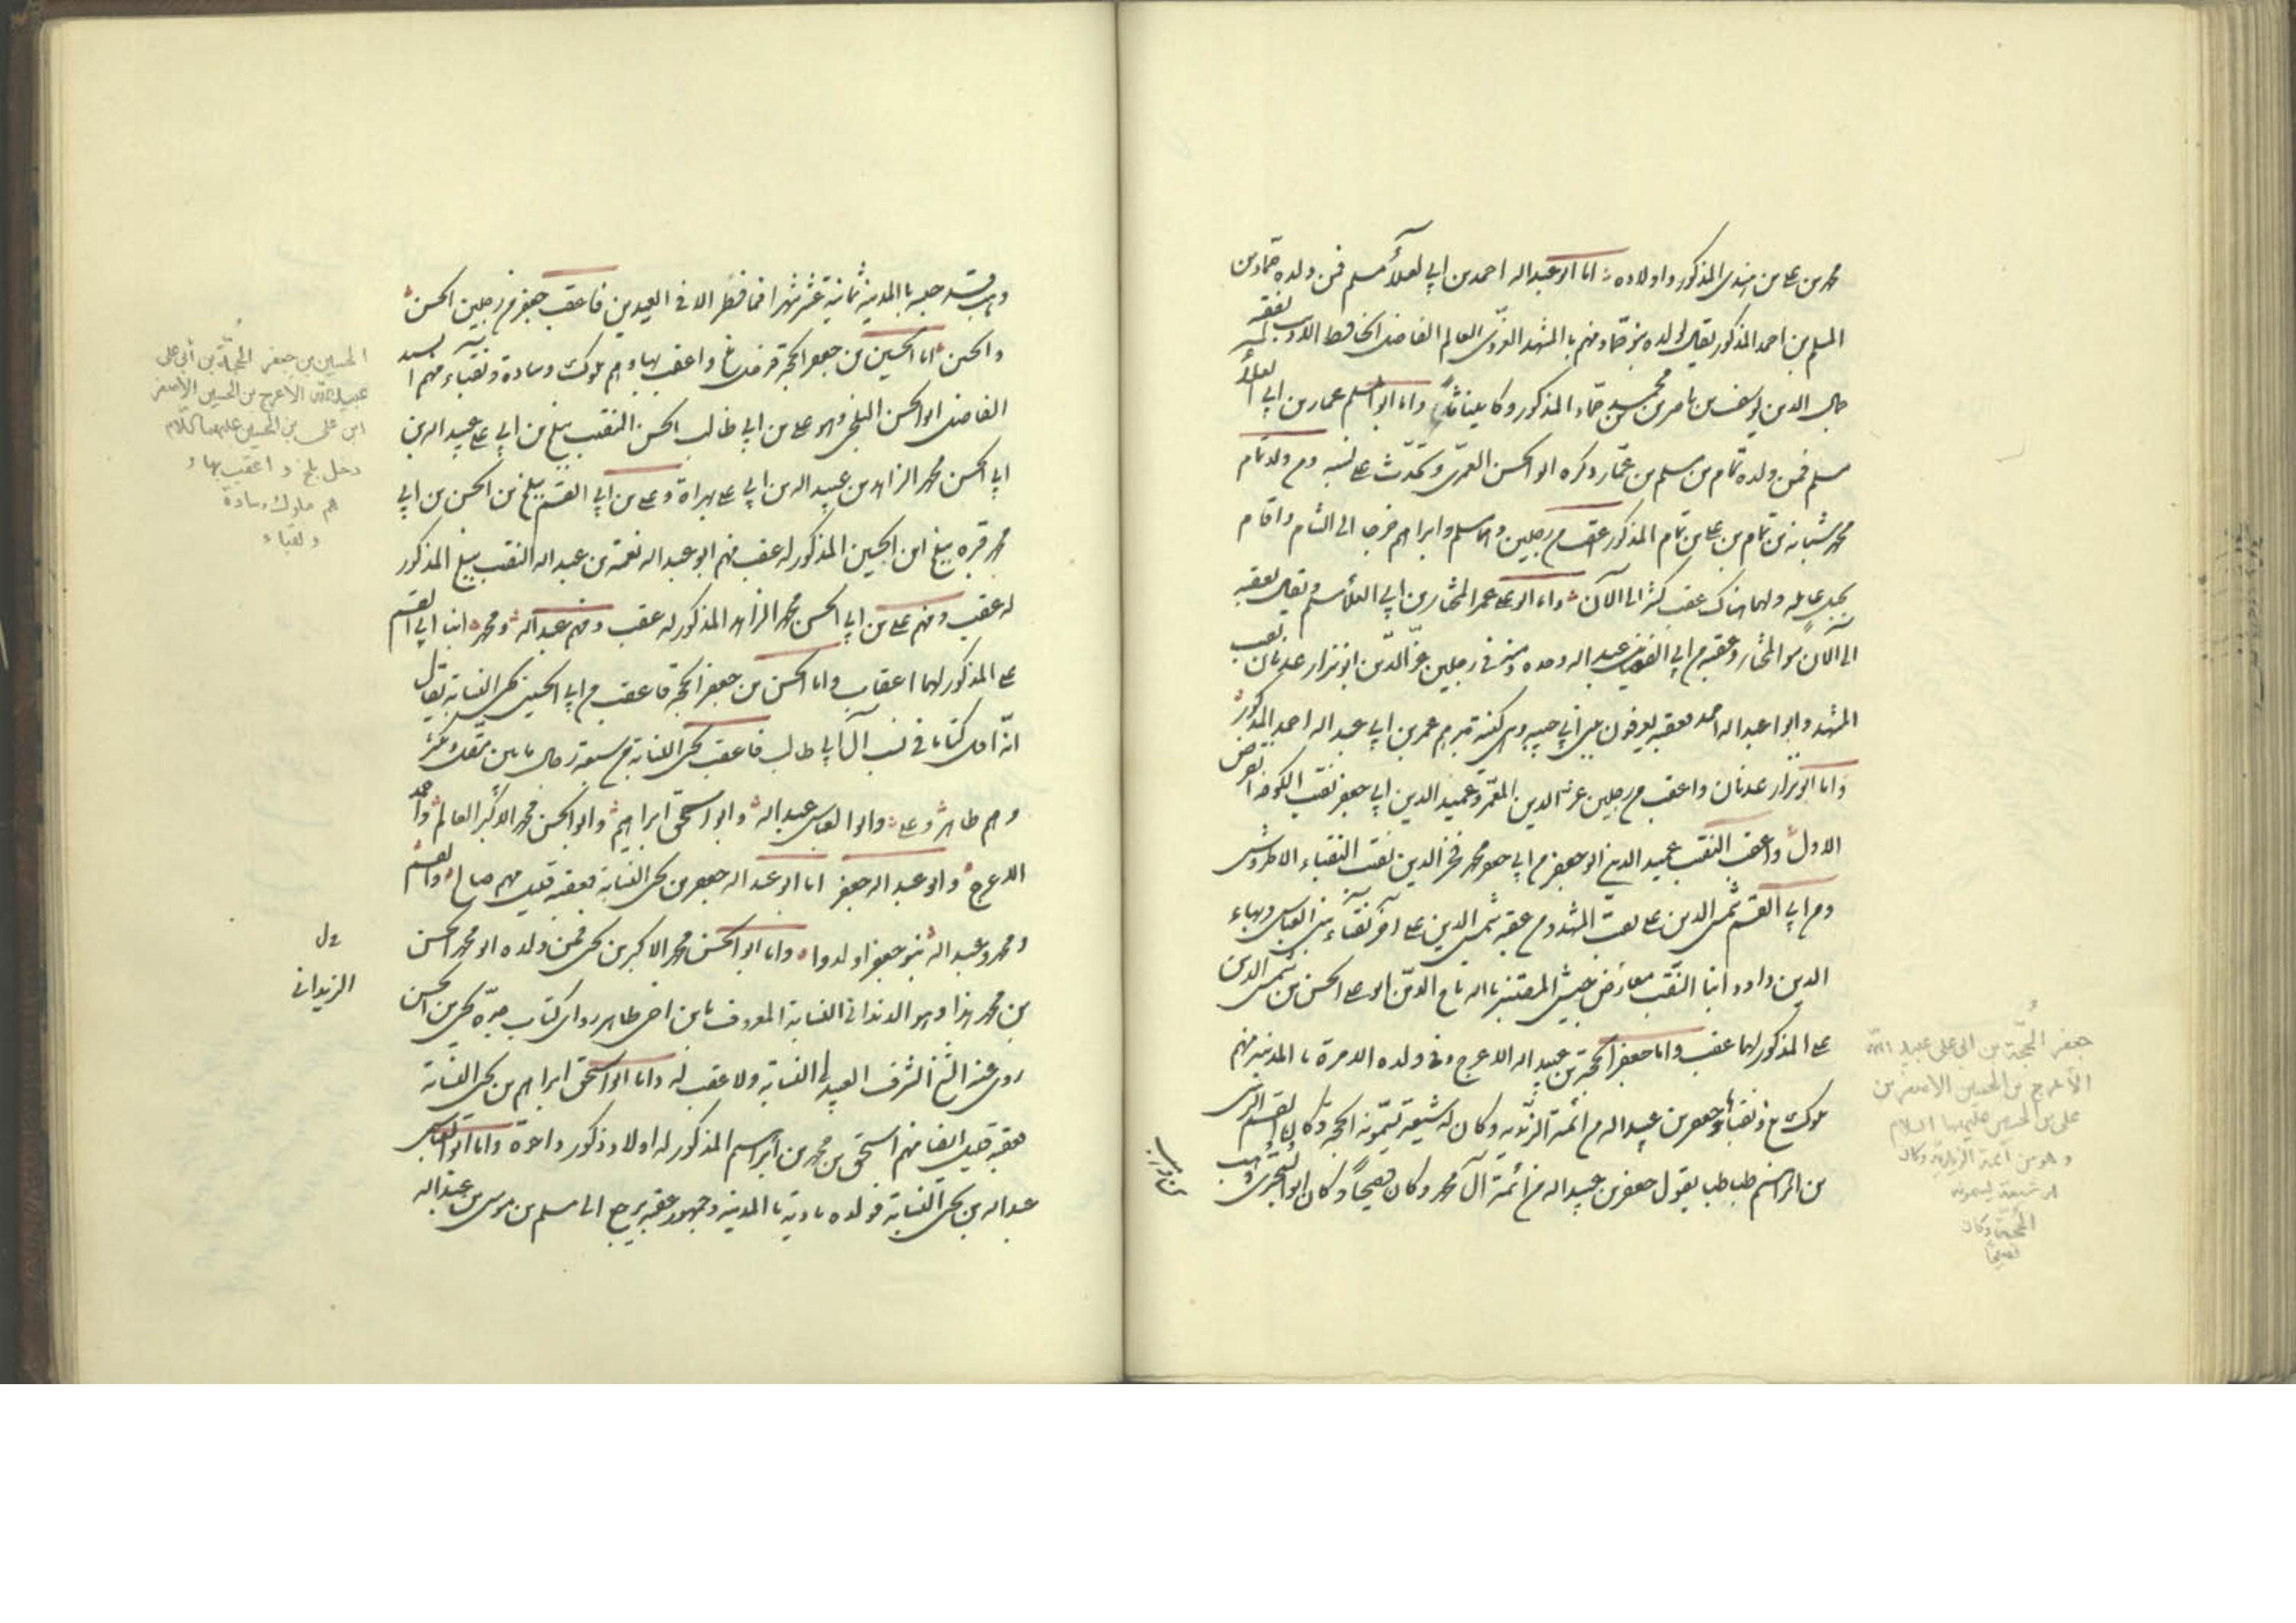 محمد بن علي بن اسدى المذكور واولاده اما ابو عبد الله احمد بن ابي العلاء مسلم فمن ولده حماد بن
المسلم بن احمد المذكور يقال لولده بنو حماد منهم بالمشهد الغروى العالم الفاضل الحافظ الاديب الفقيه
جمال الدين يوسف بن ناصر بن محمد بن حماد المذكور وكان واما ابو مسلم عمار بن ابي العلاء
مسلم فمن ولده تمام بن مسلم بن عمار ذكره ابو الحسن العمرى وتحدث على نسبه ومن ولد تمام
محمد شبانه بن تمام بن علي بن تمام المذكور اعقب من رجلين وهما مسلم وابراهيم خرجا الى الشام واقام
بجبل عامله ولهما هناك عقب كثير الى الآن واما ابو علي عمر المختار بن ابي العلاء مسلم ويقال لعقبه
الى الآن بنو المختار وعقبه من ابي الفضائل عبد الله وحده ومنه في رجلين عز الدين ابو نزار عدنان نقيب
المشهد وابو عبد الله احمد فعقبه يعرفون ببنى ابي حبيبه وهى كنية جدهم عمر بن ابي عبد الله احمد المذكور
واما ابو نزار عدنان واعقب من رجلين عز الدين المعمر وعميد الدين ابي جعفر نقيب الكوفه انقرض
الاول واعقب النقيب عميد الدين ابو جعفر من ابي جعفر محمد فخر الدين نقيب النقباء الاطروش
ومن ابي القسم شمس الدين علي نقيب المشهد ومن عقبه شمس الدين علي آخر نقباء بنى العباس وبهاء
الدين داود ابنا النقيب معارض جيش المقتفى بالله تاج الدين ابو علي الحسن بن شمس الدين
علي المذكور لهما عقب واما جعفر الحجة بن عبيد الله الاعرج وفي ولده الامرة بالمدينه منهم
ملوك بلخ ونقباؤها وجعفر بن عبيد الله من ائمة الزيديه وكان له شيعة يسمونه الحجة وكان القسم الرسى
بن ابراهيم طباطبا يقول جعفر بن عبيد الله من ائمة آل محمد وكان فصيحاً وكان ابو البخترى وهب
بن وهب
جعفر الحُجّة بن ابى على عبيد الله
الاعرج بن الحسين الاصغر بن
على بن الحسين عليهما السلام
وهو من أئمة الزيدية وكان
له شيعة يسمونه
الحجة وكان
فصيحاً
وهب قد حبسه بالمدينة ثمانية عشر شهرا فما فطر الا في العيدين فاعقب جعفر من رجلين الحسن
والحسين اما الحسين بن جعفر الحجة فدخل بلخ واعقب بها وهم ملوك وسادة ونقباء منهم السيد
الفاضل ابو الحسن البلخى وهو علي بن ابي طالب الحسن النقيب ببلخ بن ابي علي عبيد الله بن
ابي الحسن محمد الزاهد بن عبيد الله بن ابي علي بهراة وعلي بن ابي القسم ببلخ بن الحسن بن ابي
محمد قبره ببلخ ابن الحسين المذكور له عقب منهم ابو عبد الله نعمة بن عبد الله النقيب ببلخ المذكور
له عقب ومنهم علي بن ابي الحسن محمد الزاهد المذكور له عقب ومنهم عبد الله ومحمد ابنا ابي القسم
علي المذكور لهما اعقاب واما الحسن بن جعفر الحجة فاعقب من ابي الحسين يحيى النسابة يقال
انه اول كتابا في نسب آل ابي طالب فاعقب يحيى النسابة من سبعة رجال ما بين مقل ومكثر
وهم طاهر وعلي وابو العباس عبد الله وابو اسحق ابراهيم وابو الحسن محمد الاكبر العالم واحمد
الاعرج وابو عبد الله جعفر اما ابو عبد الله جعفر بن يحيى النسابة فعقبه قليل منهم صالح والقسم
ومحمد وعبد الله بنو جعفر اولدوا واما ابو الحسن محمد الاكبر بن يحيى فمن ولده ابو محمد الحسن
بن محمد هذا وهو الدندانى النسابة المعروف بابن اخى طاهر روى كتاب جده يحيى بن الحسن
روى عنه الشيخ الشرف العبيدلى النسابة ولا عقب له واما ابو اسحق ابراهيم بن يحيى النسابة
فعقبه قليل ايضا منهم اسحق بن محمد بن ابراهيم المذكور له اولاد ذكور واخوة واما ابو العباس
عبد الله بن يحيى النسابة فولده بادية بالمدينه وجمهور عقبه يرجع الى مسلم بن موسى بن عبد الله
الحسين بن جعفر الحُجّة بن أبى على
عبيد الله الاعرج بن الحسين الاصغر
ابن على بن الحسين عليهما السّلام
دخل بلخ و اعقب بها و
هم ملوك وسادة
و نقباء
الزيدانى